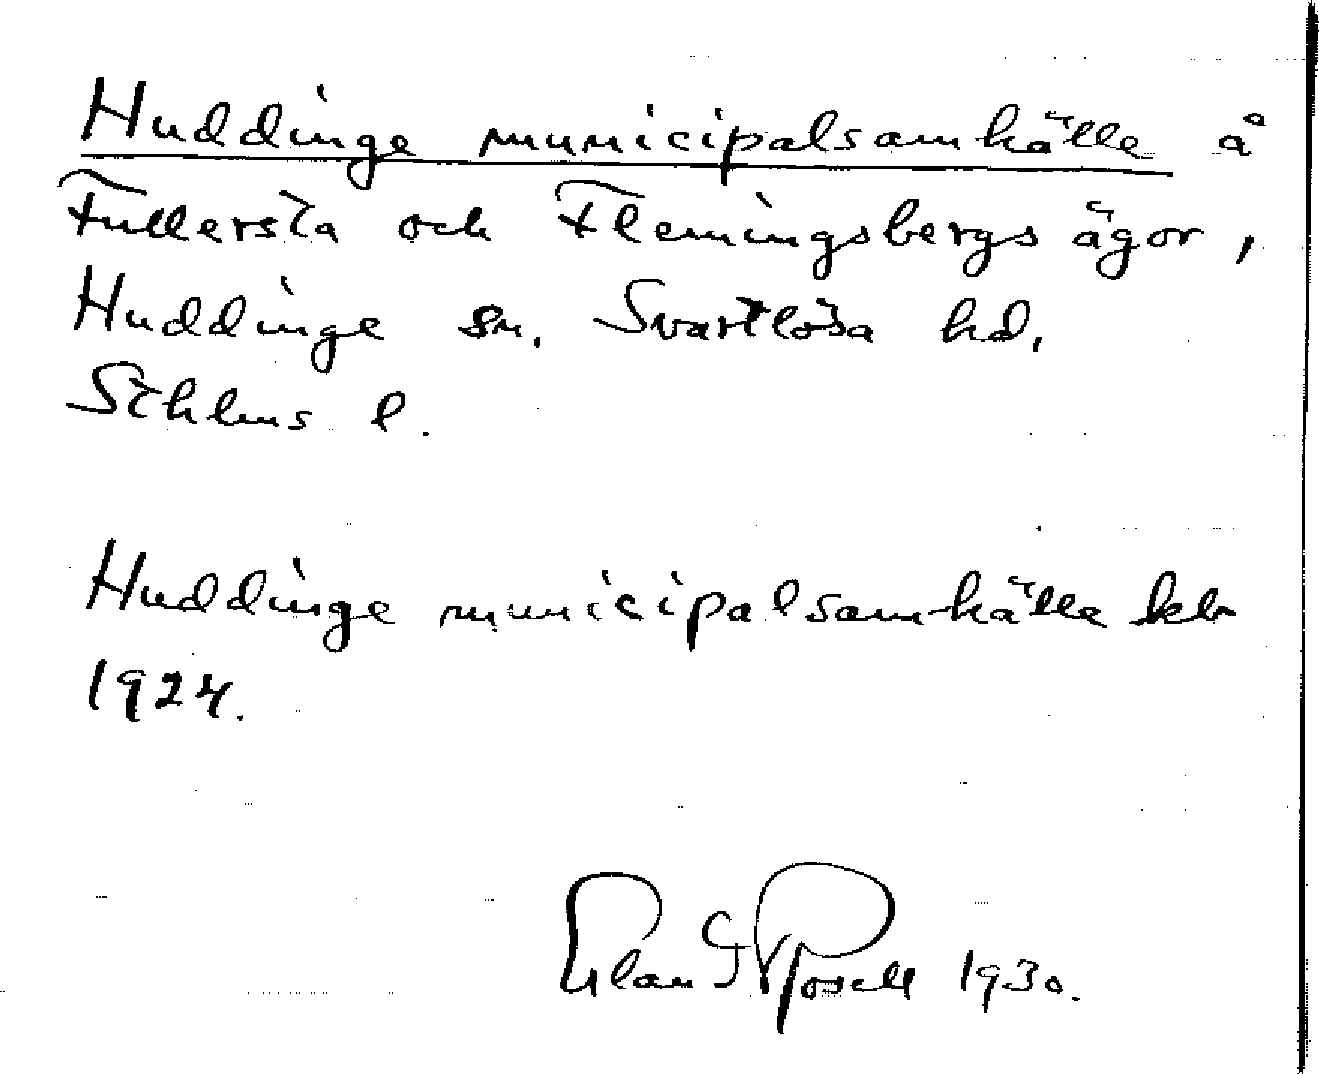 Huddinge municipalsamhälle å
Fullersta och Flemingsbergs ägor,
Huddinge sn. Svartlösa hd,
Sthlms l.
Huddinge municipalsamhälle kbr
1924.
1930.